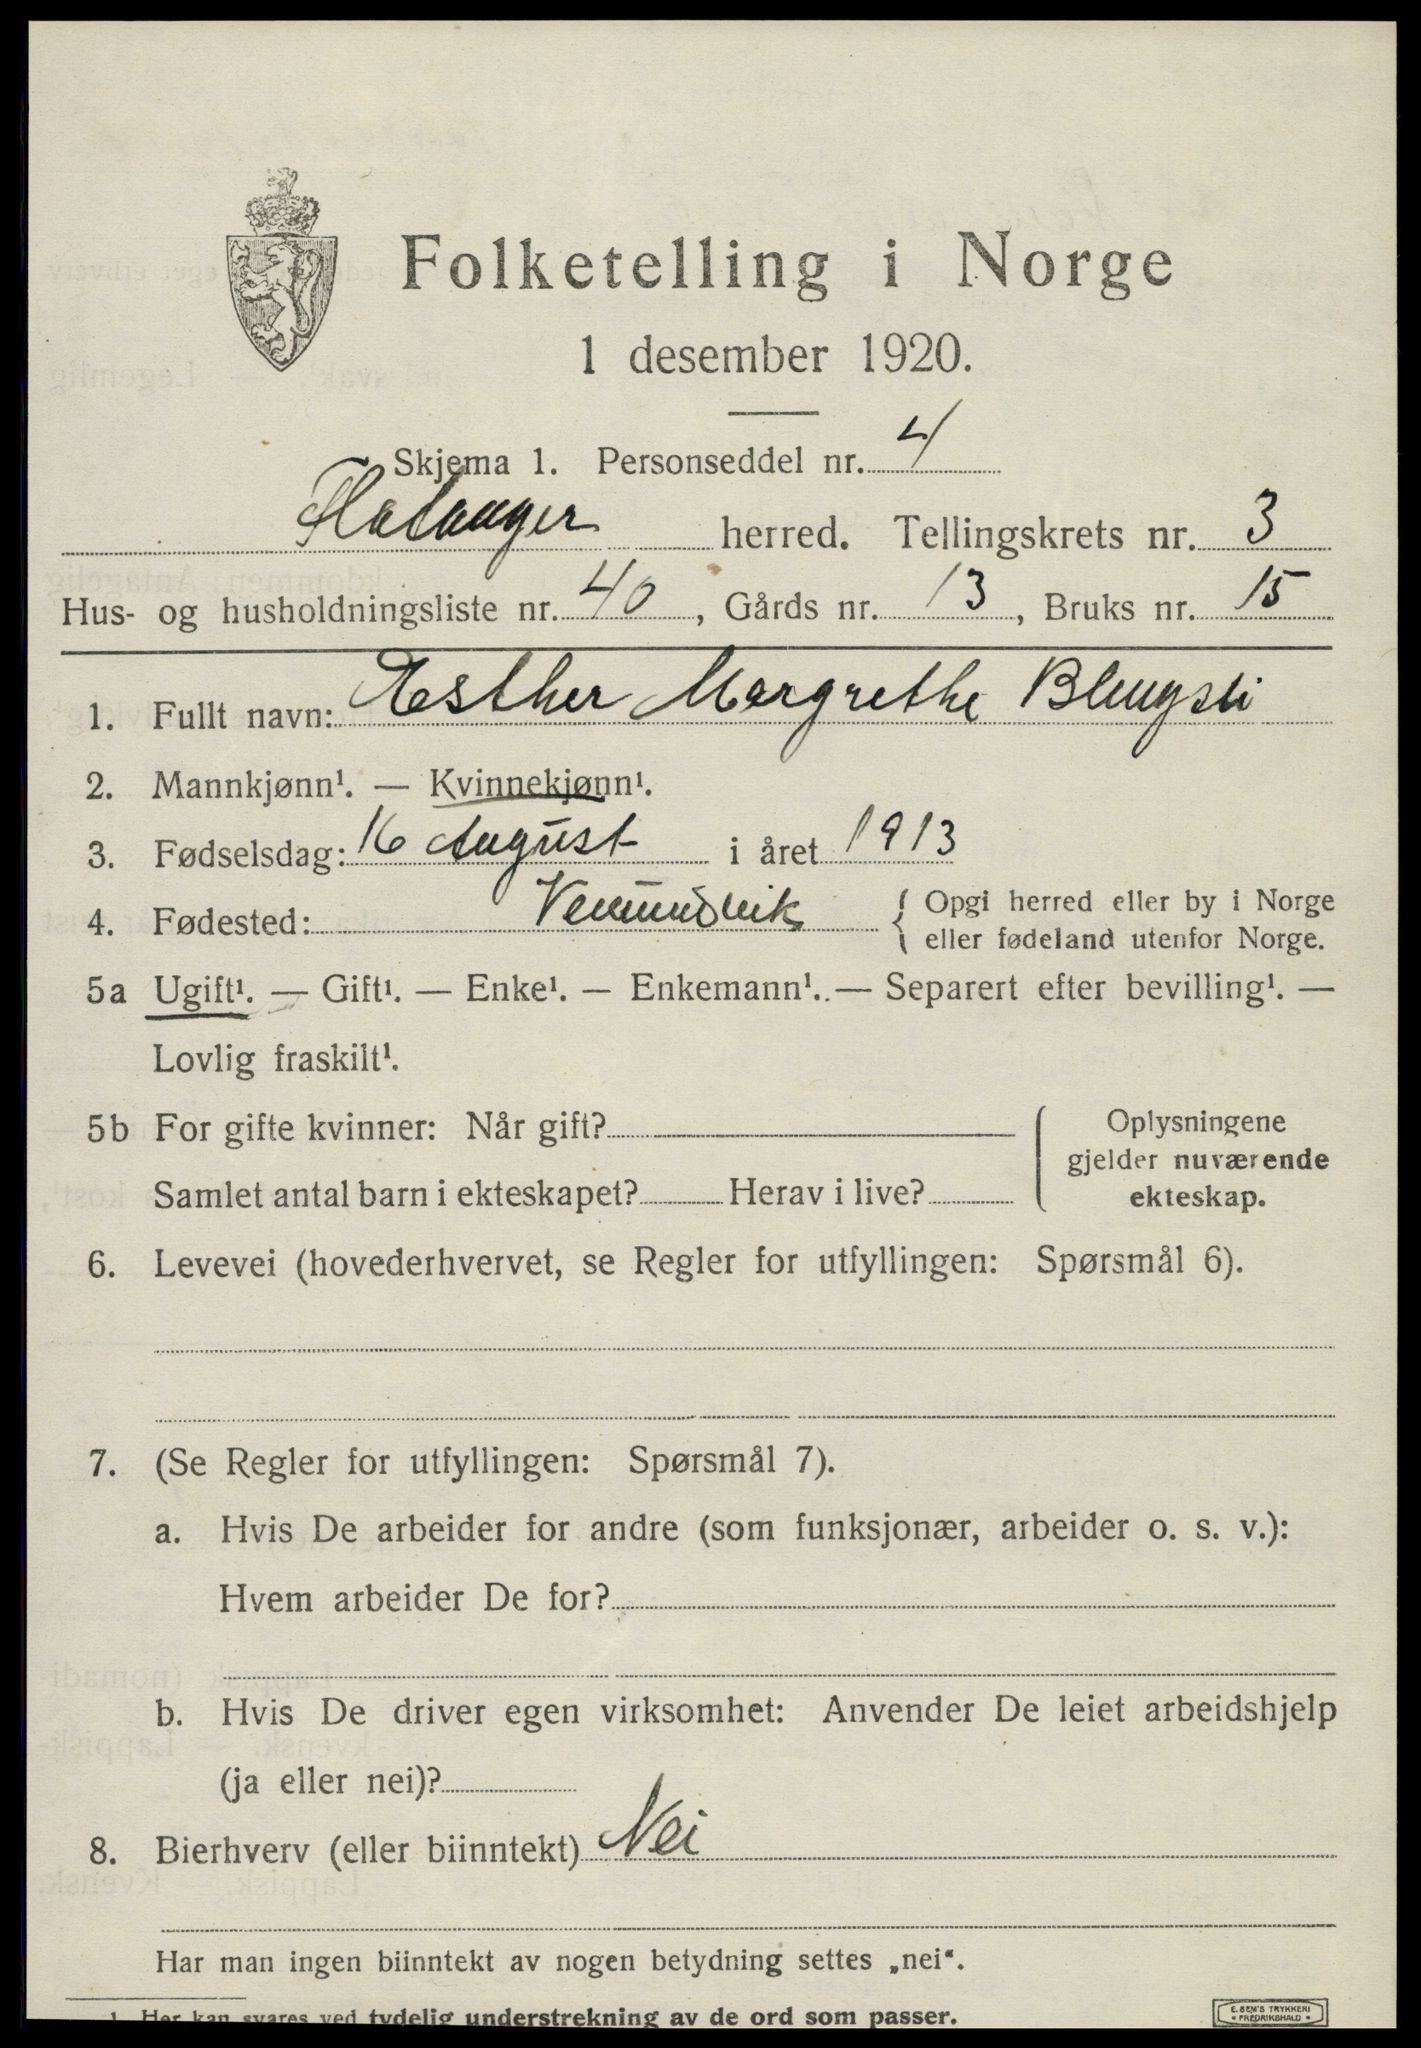 Folketelling i Norge
1 desember 1920.
Skjema 1. Personseddel nr. 4
Flatanger herred. Tellingskrets nr. 3
Hus- og husholdningsliste nr. 40, Gårds nr. 13, Bruks nr. 15
1. Fullt navn: Esther Margrethe
2. Mannkjønn¹. — Kvinnekjønn¹.
3. Fødselsdag: 16 August i året 1913
4. Fødested: Vemundvik { Opgi herred eller by i Norge
eller fødeland utenfor Norge.
5a Ugift¹. — Gift¹. — Enke¹. — Enkemann¹. — Separert efter bevilling¹. —
Lovlig fraskilt¹.
5b For gifte kvinner: Når gift?
Samlet antal barn i ekteskapet? Herav i live?
Oplysningene
gjelder nuværende
ekteskap.
6. Levevei (hovederhvervet, se Regler for utfyllingen: Spørsmål 6).
7. (Se Regler for utfyllingen: Spørsmål 7).
a. Hvis De arbeider for andre (som funksjonær, arbeider o. s. v.):
Hvem arbeider De for?
b. Hvis De driver egen virksomhet: Anvender De leiet arbeidshjelp
(ja eller nei)?
8. Bierhverv (eller biinntekt) Nei
Har man ingen biinntekt av nogen betydning settes „nei“.
1. Her kan svares ved tydelig understrekning av de ord som passer.
E. SEM'S TRYKKERI
• FREDRIKSHALD •